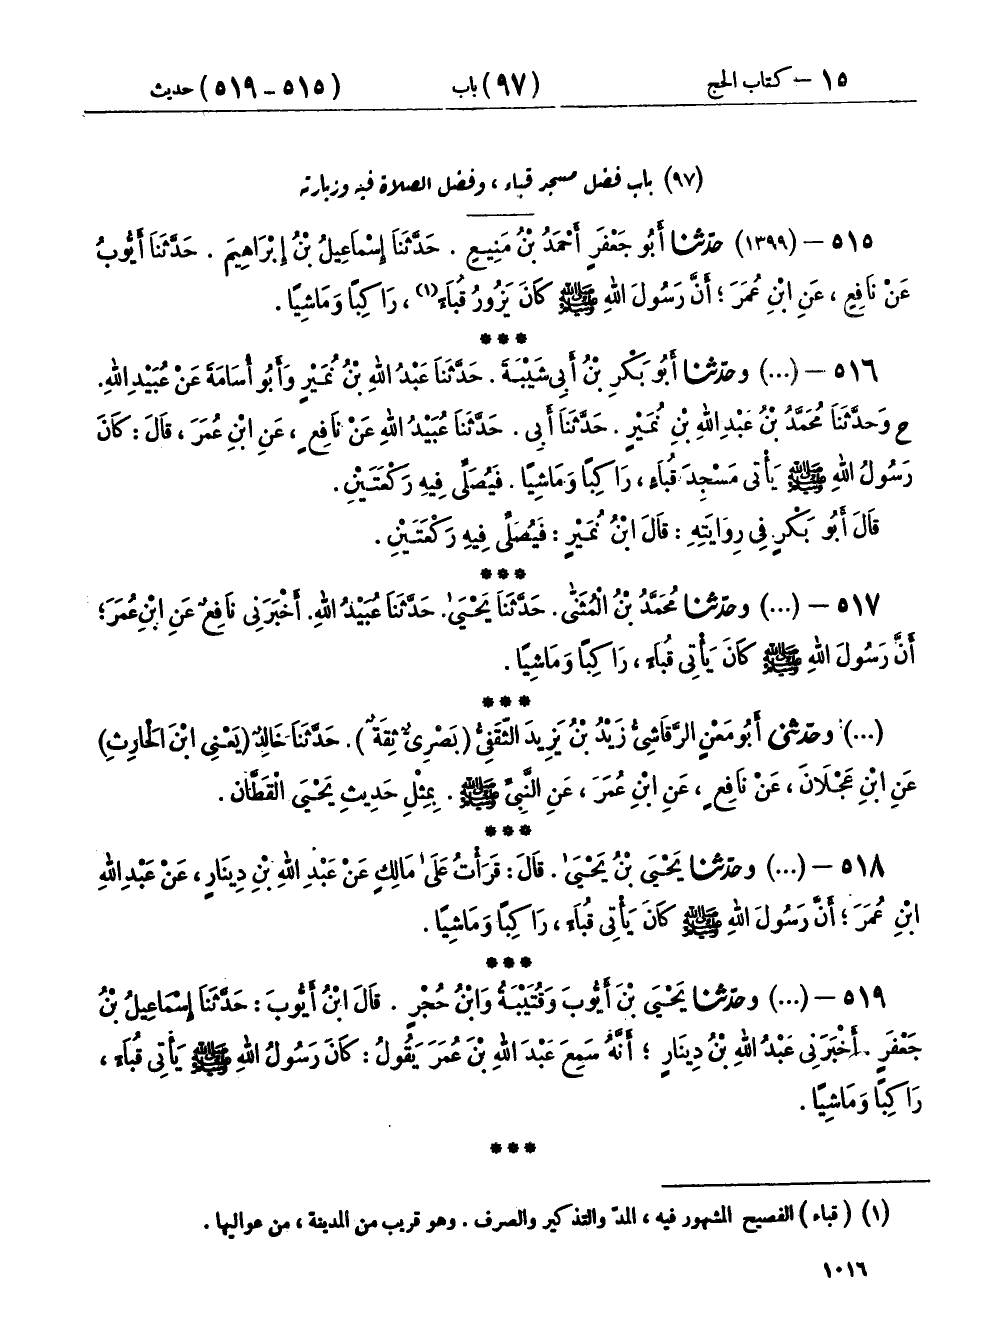 ١٥ – كتاب الحج (٩٧) باب (٥١٥ – ٥١٩) حديث
(٩٧) باب فضل مسجد قباء ، وفضل الصلاة فيه وزيارته
٥١٥ – (١٣٩٩) حدّثنا أَبُو جَعْفَرٍ أَحْمَدُ بْنُ مَنِيعٍ . حَدَّثَنَا إِسْمَاعِيلُ بْنُ إِبْرَاهِيمَ . حَدَّثَنَا أَيُّوبُ
عَنْ نَافِعٍ ، عَنِ ابْنِ عُمَرَ ؛ أَنَّ رَسُولَ اللهِ ﷺ كَانَ يَزُورُ قُبَاءً(١) ، رَاكِبًا وَمَاشِيًا .
***
٥١٦ – (...) وحدّثنا أَبُو بَكْرِ بْنُ أَبِي شَيْبَةَ . حَدَّثَنَا عَبْدُ اللهِ بْنُ نُمَيْرٍ وَأَبُو أُسَامَةَ عَنْ عُبَيْدِ اللهِ.
ح وَحَدَّثَنَا مُحَمَّدُ بْنُ عَبْدِ اللهِ بْنِ نُمَيْرٍ . حَدَّثَنَا أَبِي . حَدَّثَنَا عُبَيْدُ اللهِ عَنْ نَافِعٍ ، عَنِ ابْنِ عُمَرَ ، قَالَ : كَانَ
رَسُولُ اللهِ ﷺ يَأْتِي مَسْجِدَ قُبَاءٍ ، رَاكِبًا وَمَاشِيًا . فَيُصَلِّي فِيهِ رَكْعَتَيْنِ .
قَالَ أَبُو بَكْرٍ فِي رِوَايَتِهِ : قَالَ ابْنُ نُمَيْرٍ : فَيُصَلِّي فِيهِ رَكْعَتَيْنِ .
***
٥١٧ – (...) وحدّثنا مُحَمَّدُ بْنُ الْمُثَنَّى . حَدَّثَنَا يَحْيَىٰ. حَدَّثَنَا عُبَيْدُ اللهِ. أَخْبَرَنِي نَافِعٌ عَنِ ابْنِ عُمَرَ ؛
أَنَّ رَسُولَ اللهِ ﷺ كَانَ يَأْتِي قُبَاءً ، رَاكِبًا وَمَاشِيًا .
***
(...) وحدّثني أَبُو مَعْنٍ الرَّقَاشِيُّ زَيْدُ بْنُ يَزِيدَ الثَّقَفِيُّ ( بَصْرِيٌّ ثِقَةٌ ) . حَدَّثَنَا خَالِدٌ (يَعْنِي ابْنَ الْحَارِثِ)
عَنِ ابْنِ عَجْلَانَ ، عَنْ نَافِعٍ ، عَنِ ابْنِ عُمَرَ ، عَنِ النَّبِيِّ ﷺ . بِمِثْلِ حَدِيثِ يَحْيَى الْقَطَّانِ .
***
٥١٨ – (...) وحدّثنا يَحْيَى بْنُ يَحْيَىٰ . قَالَ : قَرَأْتُ عَلَىٰ مَالِكٍ عَنْ عَبْدِ اللهِ بْنِ دِينَارٍ ، عَنْ عَبْدِ اللهِ
ابْنِ عُمَرَ ؛ أَنَّ رَسُولَ اللهِ ﷺ كَانَ يَأْتِي قُبَاءً ، رَاكِبًا وَمَاشِيًا .
***
٥١٩ – (...) وحدّثنا يَحْيَى بْنُ أَيُّوبَ وَقُتَيْبَةُ وَابْنُ حُجْرٍ . قَالَ ابْنُ أَيُّوبَ : حَدَّثَنَا إِسْمَاعِيلُ بْنُ
جَعْفَرٍ . أَخْبَرَنِي عَبْدُ اللهِ بْنُ دِينَارٍ ؛ أَنَّهُ سَمِعَ عَبْدَ اللهِ بْنَ عُمَرَ يَقُولُ : كَانَ رَسُولُ اللهِ ﷺ يَأْتِي قُبَاءً ،
رَاكِبًا وَمَاشِيًا .
***
(١) ( قباء ) الفصيح المشهور فيه ، المدّ والتذكير والصرف . وهو قريب من المدينة ، من عواليها .
١٠١٦